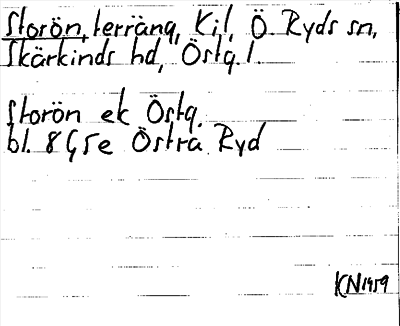 Storön, terräng, Kil, Ö. Ryds sn,
Skärkinds hd, Östg. l.
Storön ek Östg.
bl. 8 G 5e Östra Ryd
KN 1959